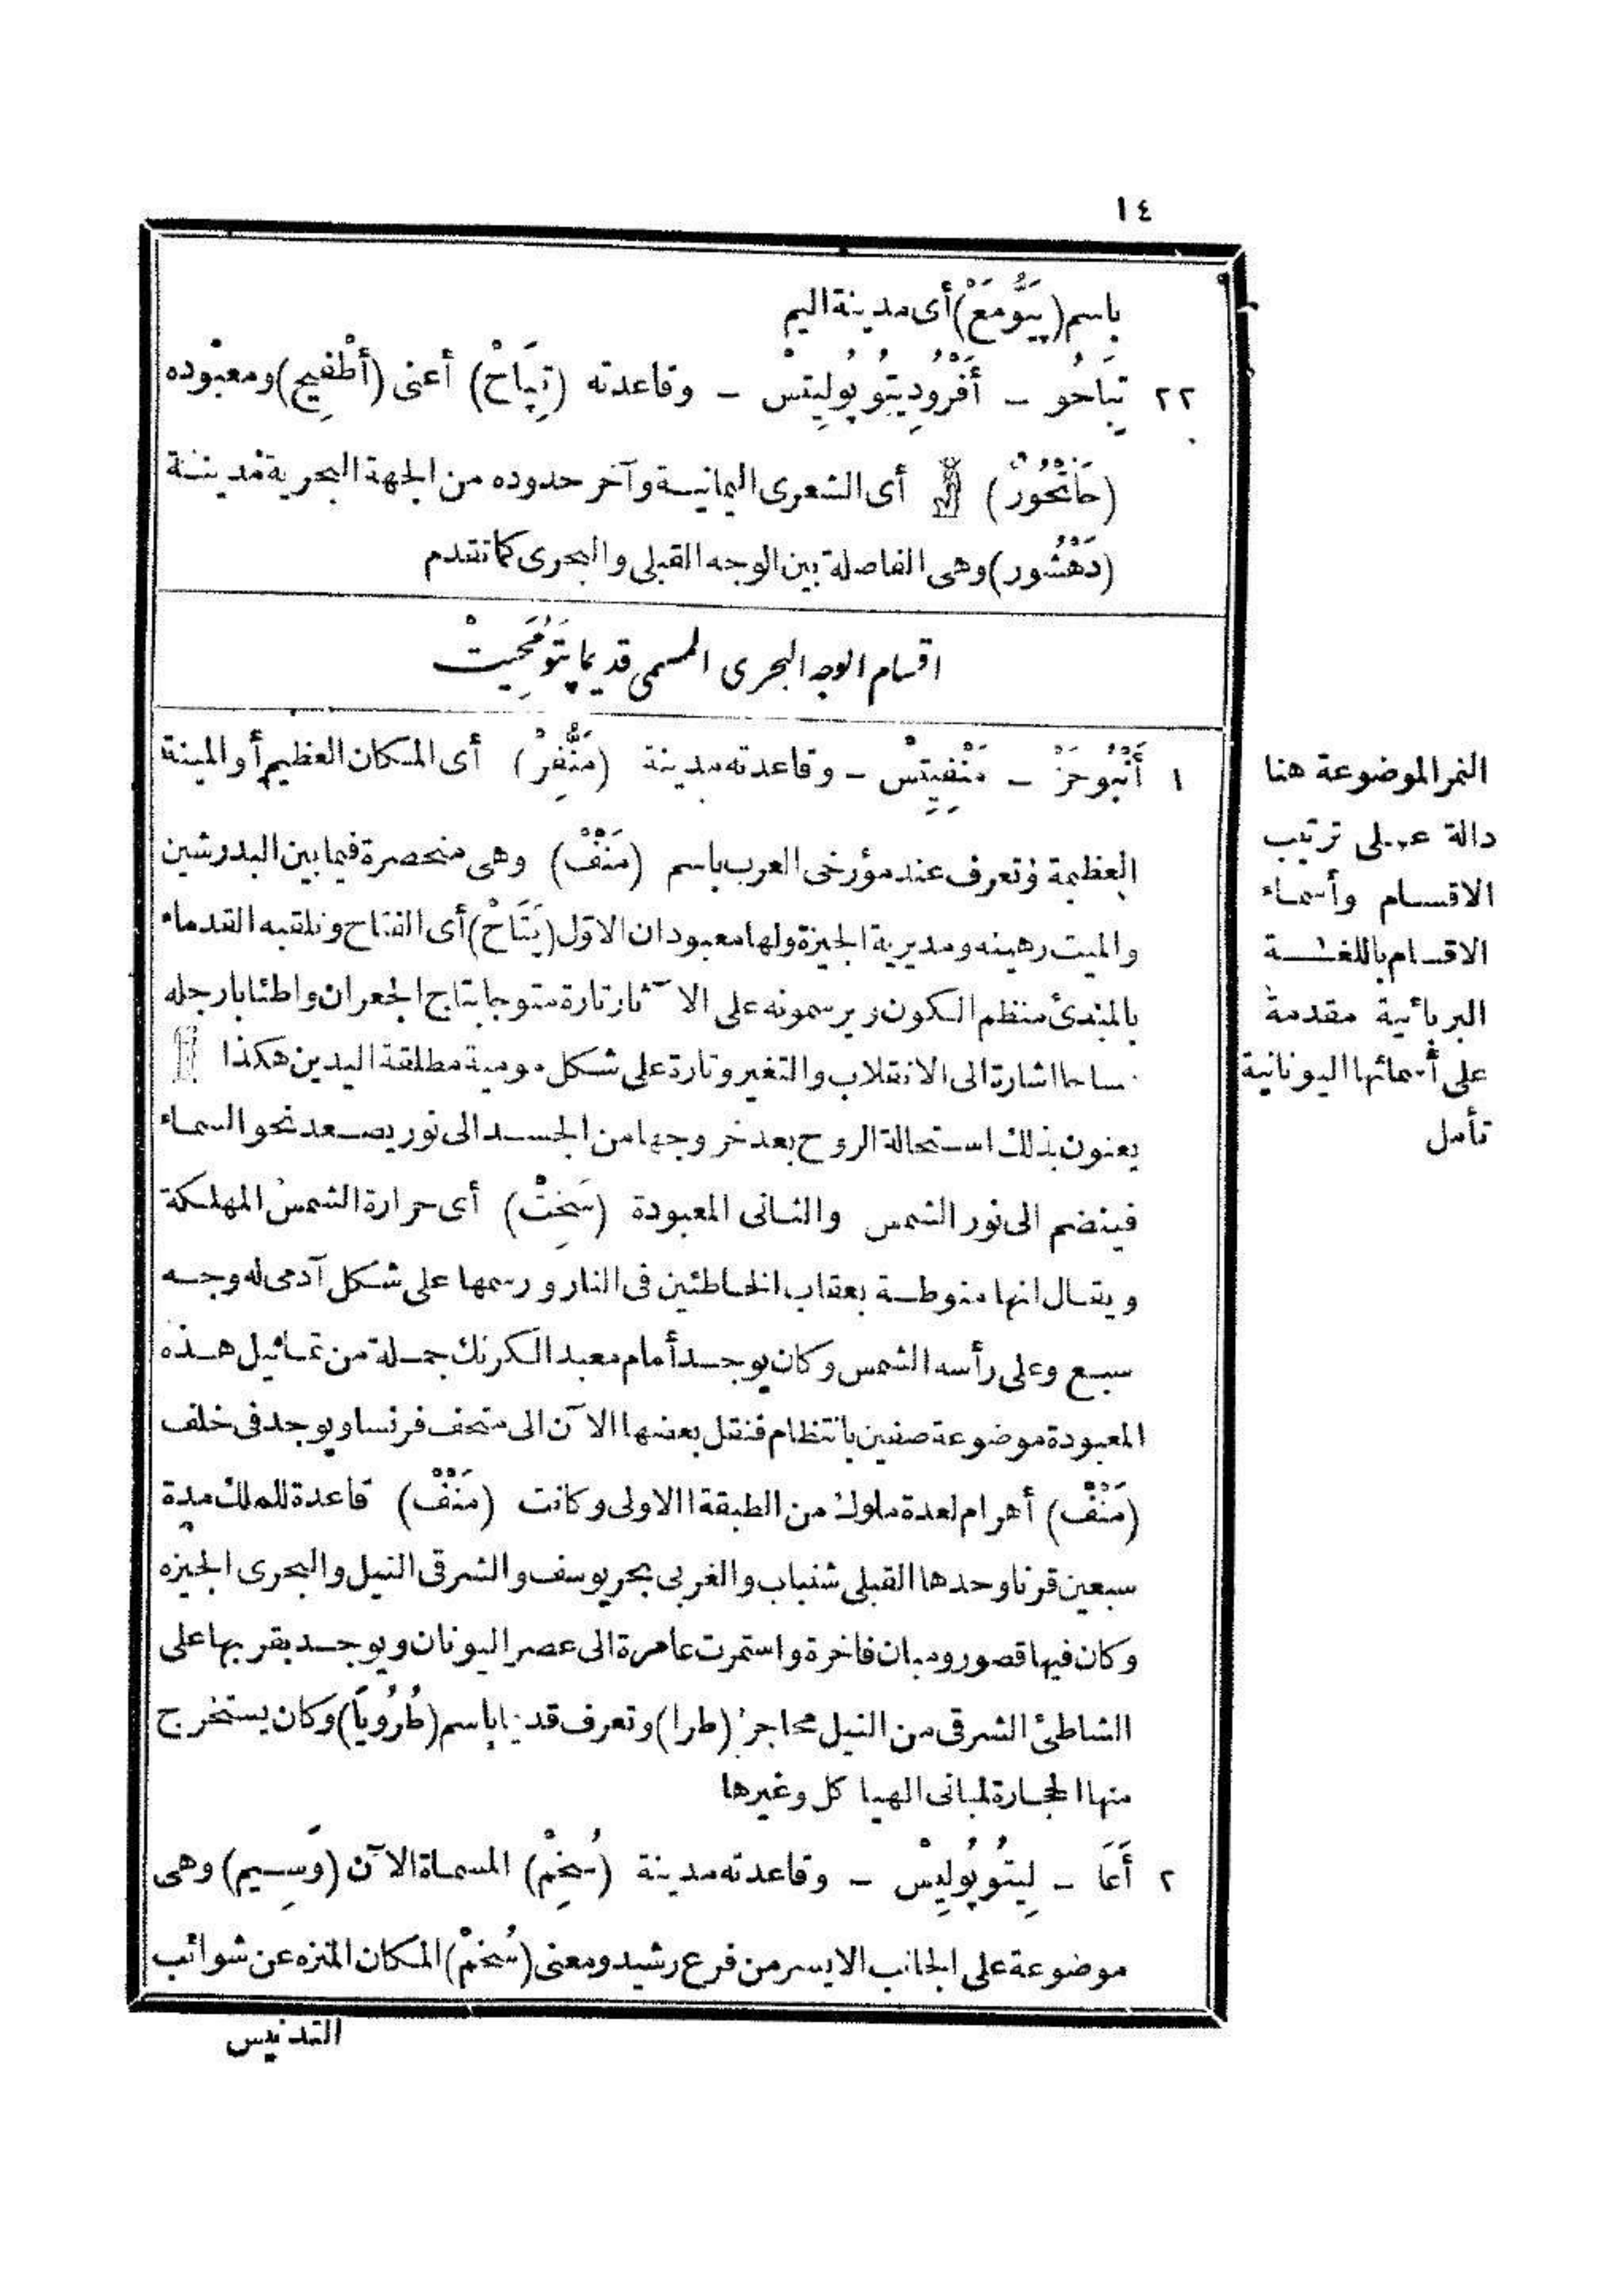 ١٤
باسم (پَيُّومَعْ) أى مدينة اليم
٢٢ تِپَاحُو ـ أَفْرُودِيتُو پُولِيتِسْ ـ وقاعدته (تِپَاحْ) أعنى (أَطْفِيح) ومعبوده
(حَاتْحُورْ) أى الشعرى اليمانيـة وآخر حدوده من الجهة البحرية مدينـة
(دَهْشُور) وهى الفاصلة بين الوجه القبلى والبحرى كما تقدم
اقسام الوجه البحرى المسمى قديما پَتَوُمَحِيتْ
١ أَنْبُوحَزْ ـ مَنْفِيتِسْ ـ وقاعدته مدينة (مَنُّفِرْ) أى المكان العظيم أو المينة
العظيمة وتعرف عند مؤرخى العرب باسم (مَنْفْ) وهى منحصرة فيما بين البدرشين
والميت رهينه ومديرية الجيزة ولها معبودان الاوّل (پَتَاحْ) أى الفتاح وتلقبه القدماء
بالمبتدئ منظم الكون ويرسمونه على الآثار تارة متوجا بتاج الجعران واطئا بارجله
اشارة الى الانقلاب والتغير وتارة على شكل مومية مطلقة اليدين هكذا
يعنون بذلك استحالة الروح بعد خروجها من الجسد الى نور يصعد نحو السماء
فينضم الى نور الشمس والثانى المعبودة (سَخِتْ) أى حرارة الشمس المهلكة
ويقال انها منوطـة بعقاب الخاطئين فى النار ورسمها على شكل آدمى له وجـه
سبـع وعلى رأسه الشمس وكان يوجد أمام معبد الكرنك جملة من تماثيل هـذه
المعبودة موضوعة صفين بانتظام فنقل بعضها الآن الى متحف فرنسا ويوجد فى خلف
(مَنْفْ) أهرام لعدة ملوك من الطبقة الاولى وكانت (مَنْفْ) قاعدة للملك مدة
سبعين قرنا وحدها القبلى شنباب والغربى بحر يوسف والشرقى النيل والبحرى الجيزه
وكان فيها قصور ومبان فاخرة واستمرت عامرة الى عصر اليونان ويوجد بقربها على
الشاطئ الشرقى من النيل محاجر (طرا) وتعرف قديما باسم (طُرُويَا) وكان يستخرج
منها الحجارة لمبانى الهياكل وغيرها
٢ أَعَا ـ لِيتُو پُولِيسْ ـ وقاعدته مدينة (سُخِمْ) المسماة الآن (وَسِيم) وهى
موضوعة على الجانب الايسر من فرع رشيد ومعنى (سُخِمْ) المكان المنزه عن شوائب
التدنيس
النمر الموضوعة هنا
دالة عـلى ترتيب
الاقسام وأسماء
الاقسام باللغـة
البربائية مقدمة
على أسمائها اليونانية
تأمل